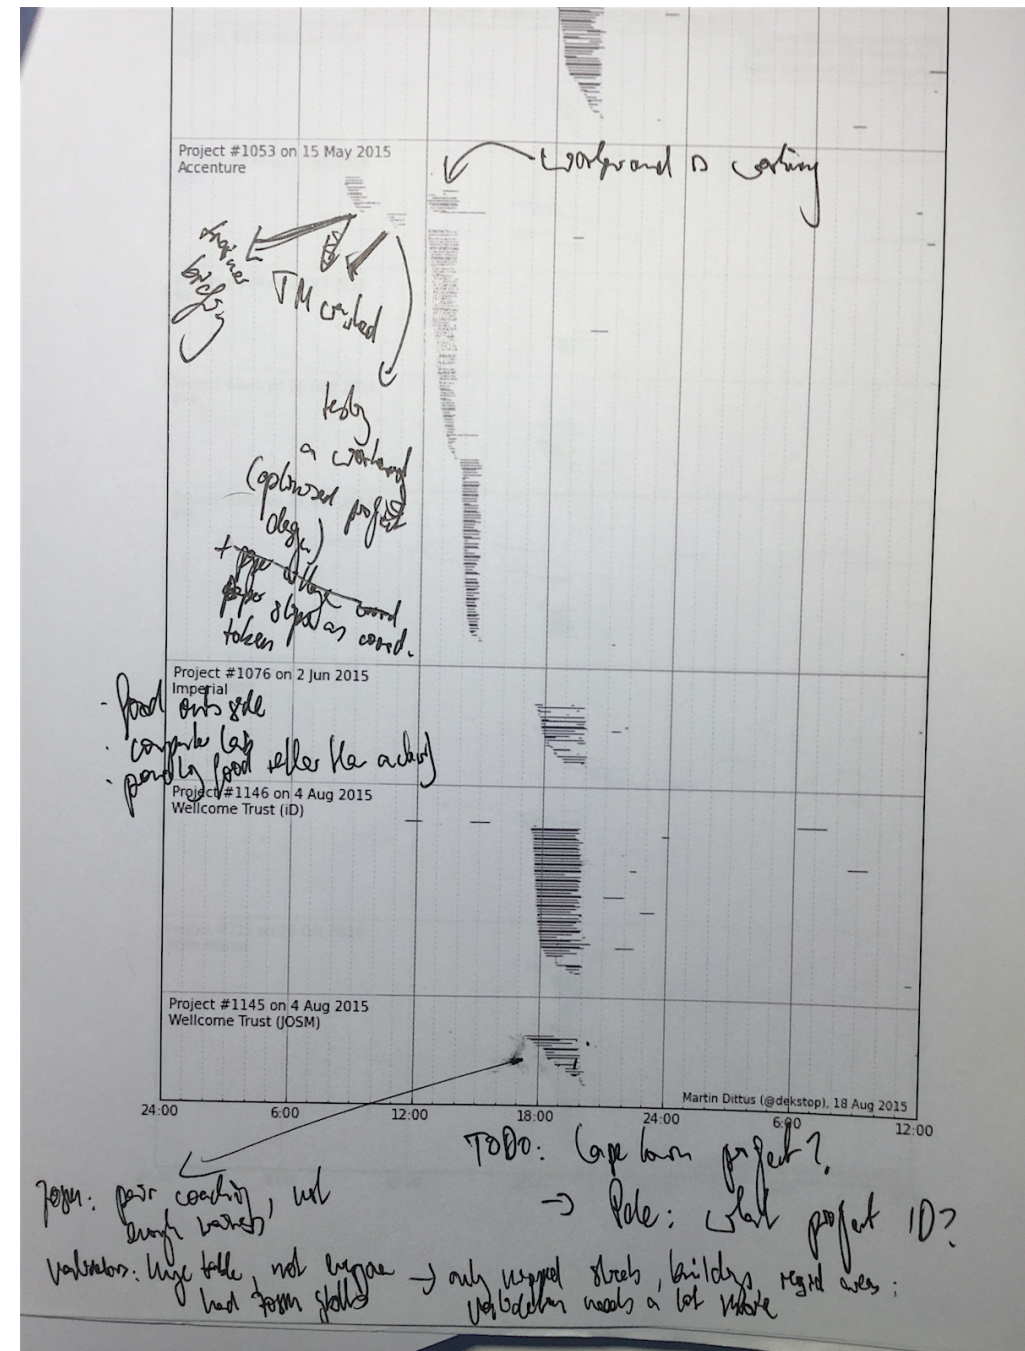 Project #1053 on 15 May 2015
Accenture
workaround is working
engineer
briefing
TM crashed
testing
a workaround
(optimised project
design)
paper slips as coord.
token
Project #1076 on 2 Jun 2015
Imperial
- food outside
- computer lab
- food after the activity
Project #1146 on 4 Aug 2015
Wellcome Trust (iD)
Project #1145 on 4 Aug 2015
Wellcome Trust (JOSM)
Martin Dittus (@dekstop), 18 Aug 2015
24:00 6:00 12:00 18:00 24:00 6:00 12:00
TODO: Cape town project?
→ Pete: what project ID?
JOSM: pair coaching, not
enough trainers
validators: huge table, not everyone
had JOSM skills
→ only mapped streets, buildings, resid areas;
validation needs a lot more